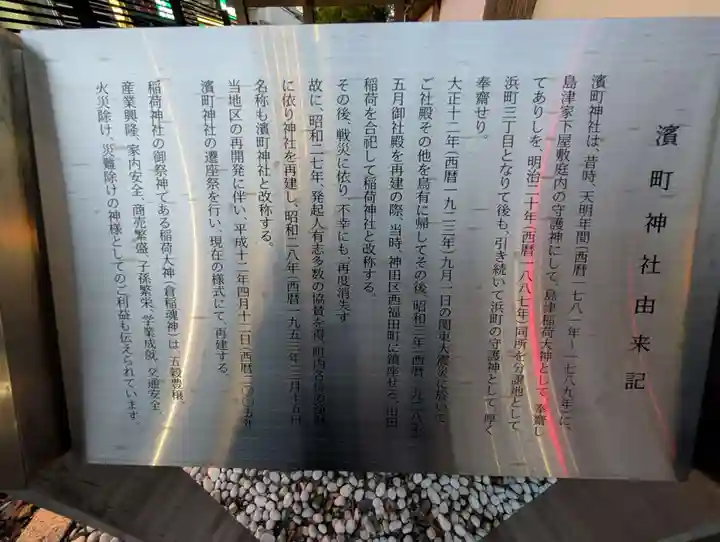 濱町神社由来記
濱町神社は、昔時、天明年間(西暦一七八一年～一七八九年)に、
島津家下屋敷庭内の守護神にして、島津稲荷大神として、奉齋し
てありしを、明治二十年(西暦一八八七年)同所を分譲地として
浜町三丁目となりて後も、引き続いて浜町の守護神として、厚く
奉齋せり。
大正十二年(西暦一九二三年)九月一日の関東大震災に於いて
ご社殿その他を烏有に帰してその後、昭和三年(西暦一九二八年)
五月御社殿を再建の際、当時、神田区西福田町に鎮座せる、
稲荷を合祀して稲荷神社と改称する。
その後、戦災に依り、不幸にも、再度消失す
故に、昭和二七年、発起人有志多数の協賛を得、町内各位の
に依り神社を再建し、昭和二八年(西暦一九五三年)三月十五日
名称も濱町神社と改称する。
当地区の再開発に伴い、平成十二年四月十二日(西暦二〇〇
濱町神社の遷座祭を行い、現在の様式にて、再建する。
稲荷神社の御祭神である稲荷大神(倉稲魂神)は、五穀豊穣、
産業興隆、家内安全、商売繁盛、子孫繁栄、学業成就、交通安全、
火災除け、災難除けの神様としてのご利益も伝えられています。